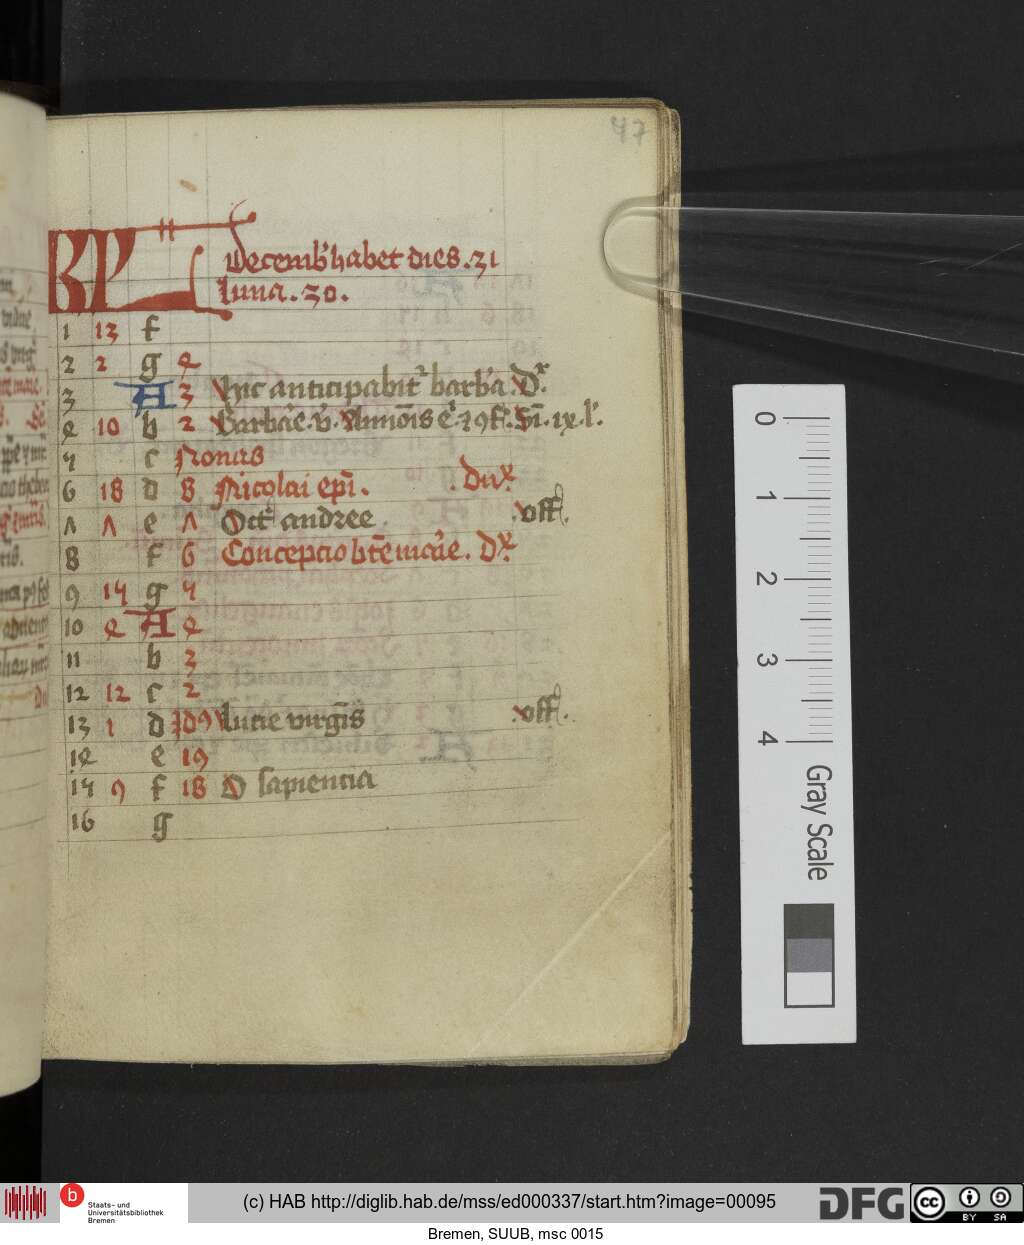 47
KL Decemb' habet dies . 31
luna . 30 .
1 13 f
2 2 g 4
3 A 3 Hic anticipabit' barb'a . Dx
4 10 b 2 Barba'e . v'.
5 c Nonas
6 18 d 8 Nicolai epi . . Dux
7 7 e 7 Oct' andree . off .
8 f 6 Concepcio bte marie . Dx
9 15 g 5
10 4 A 4
11 b 3
12 12 c 2
13 1 d Id9 Lucie virgis . off .
14 e 19
15 9 f 18 O sapiencia
16 g
0 1 2 3 4
Gray Scale
b Staats- und
Universitätsbibliothek
Bremen
(c) HAB http://diglib.hab.de/mss/ed000337/start.htm?image=00095
DFG
cc BY SA
Bremen, SUUB, msc 0015